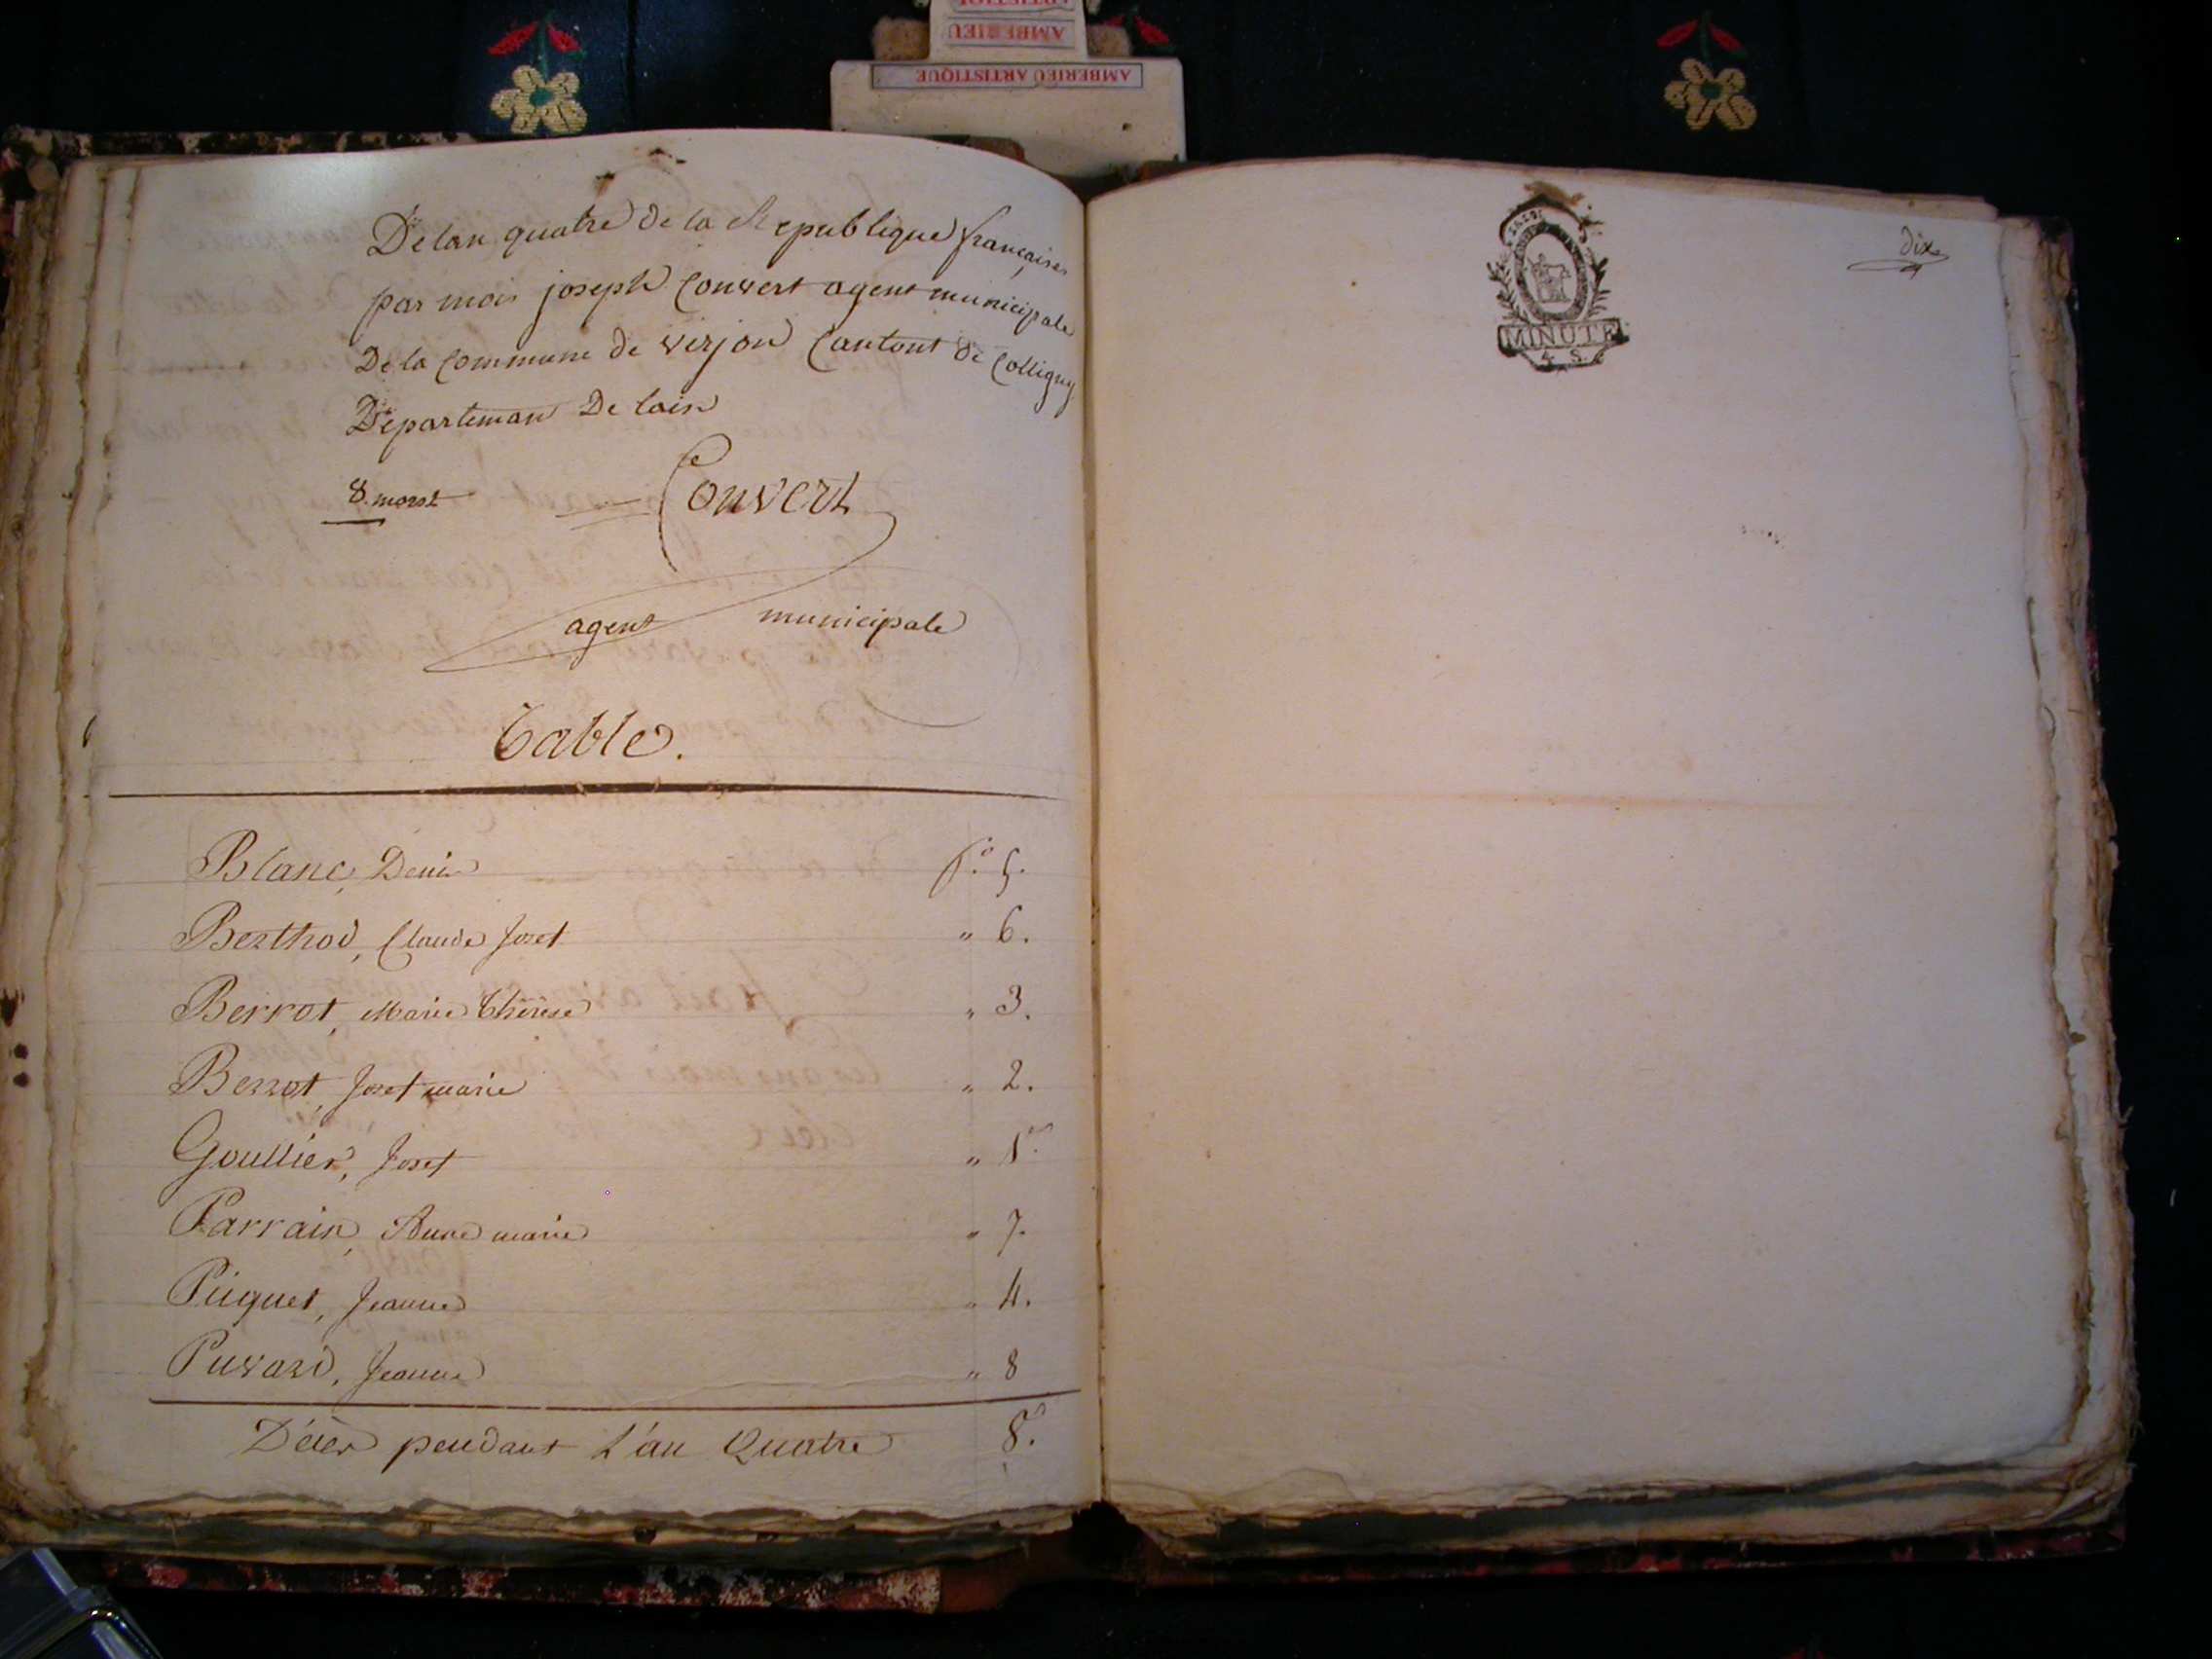 ARTISTIQUE
AMBERIEU
AMBERIEU ARTISTIQUE
De lan quatre de la Republique françaises
par moi joseph Convert agent municipale
De la Commune de verjon Cantont de Colligny
Departeman De lain
8. morst
Convert
agent municipale
Table.
Blanc, Denis fo. 5.
Berthod, Claude Joset " 6.
Berrot, Marie thérèse " 3.
Berrot, Joset marie " 2.
Goullier, Joset " 1er
Parrain, Anne marie " 7.
Piquet, Jeanne " 4.
Puvard, Jeanne " 8
Décès pendant L'an Quatre 8.
dix
MINUTE
4 S.